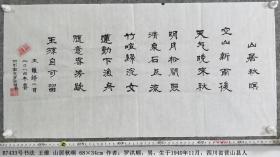 山居秋暝
空山新雨後
天气晚来秋
明月松间照
清泉石上流
竹喧归浣女
莲动下渔舟
随意春芳歇
王孙自可留
王维诗一首
87433号书法 王维 山居秋暝 68×34cm 作者：罗洪顺，男，生于1940年11月，四川省营山县人